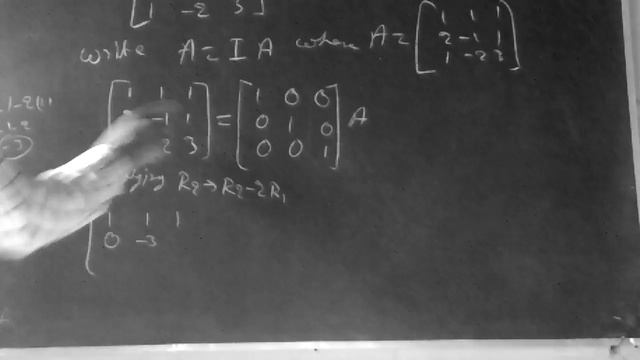 1 -2 3
write A = I A where A = [1 1 1
2 -1 1
1 -2 3]
[1 1 1
-1 1
2 3] = [1 0 0
0 1 0
0 0 1] A
R2 → R2 - 2R1
1 1 1
0 -3